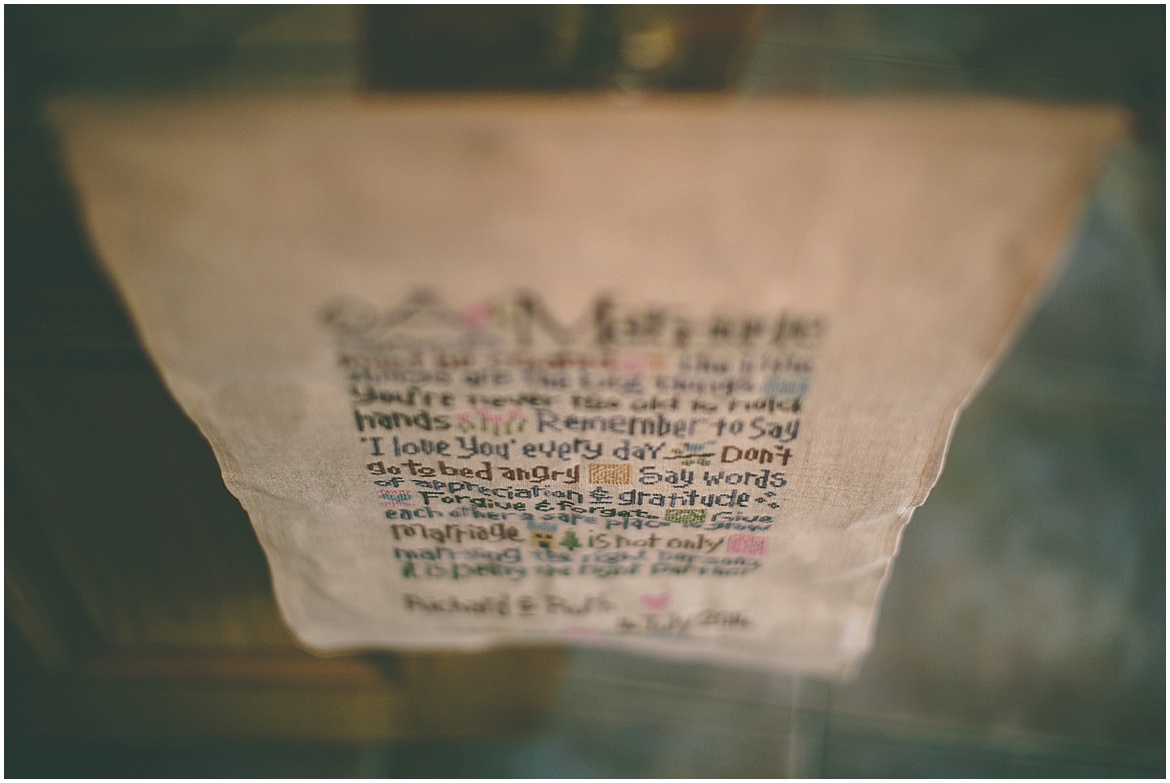 A Marriage
The little
things are the big things
you're never too old to hold
hands Remember to Say
'I love You' every day Don't
go to bed angry Say words
of appreciation & gratitude
Forgive & forget. Give
each other a safe place to grow
Marriage is not only
marrying the right person
it is being the right partner
Richard & Ruth
July